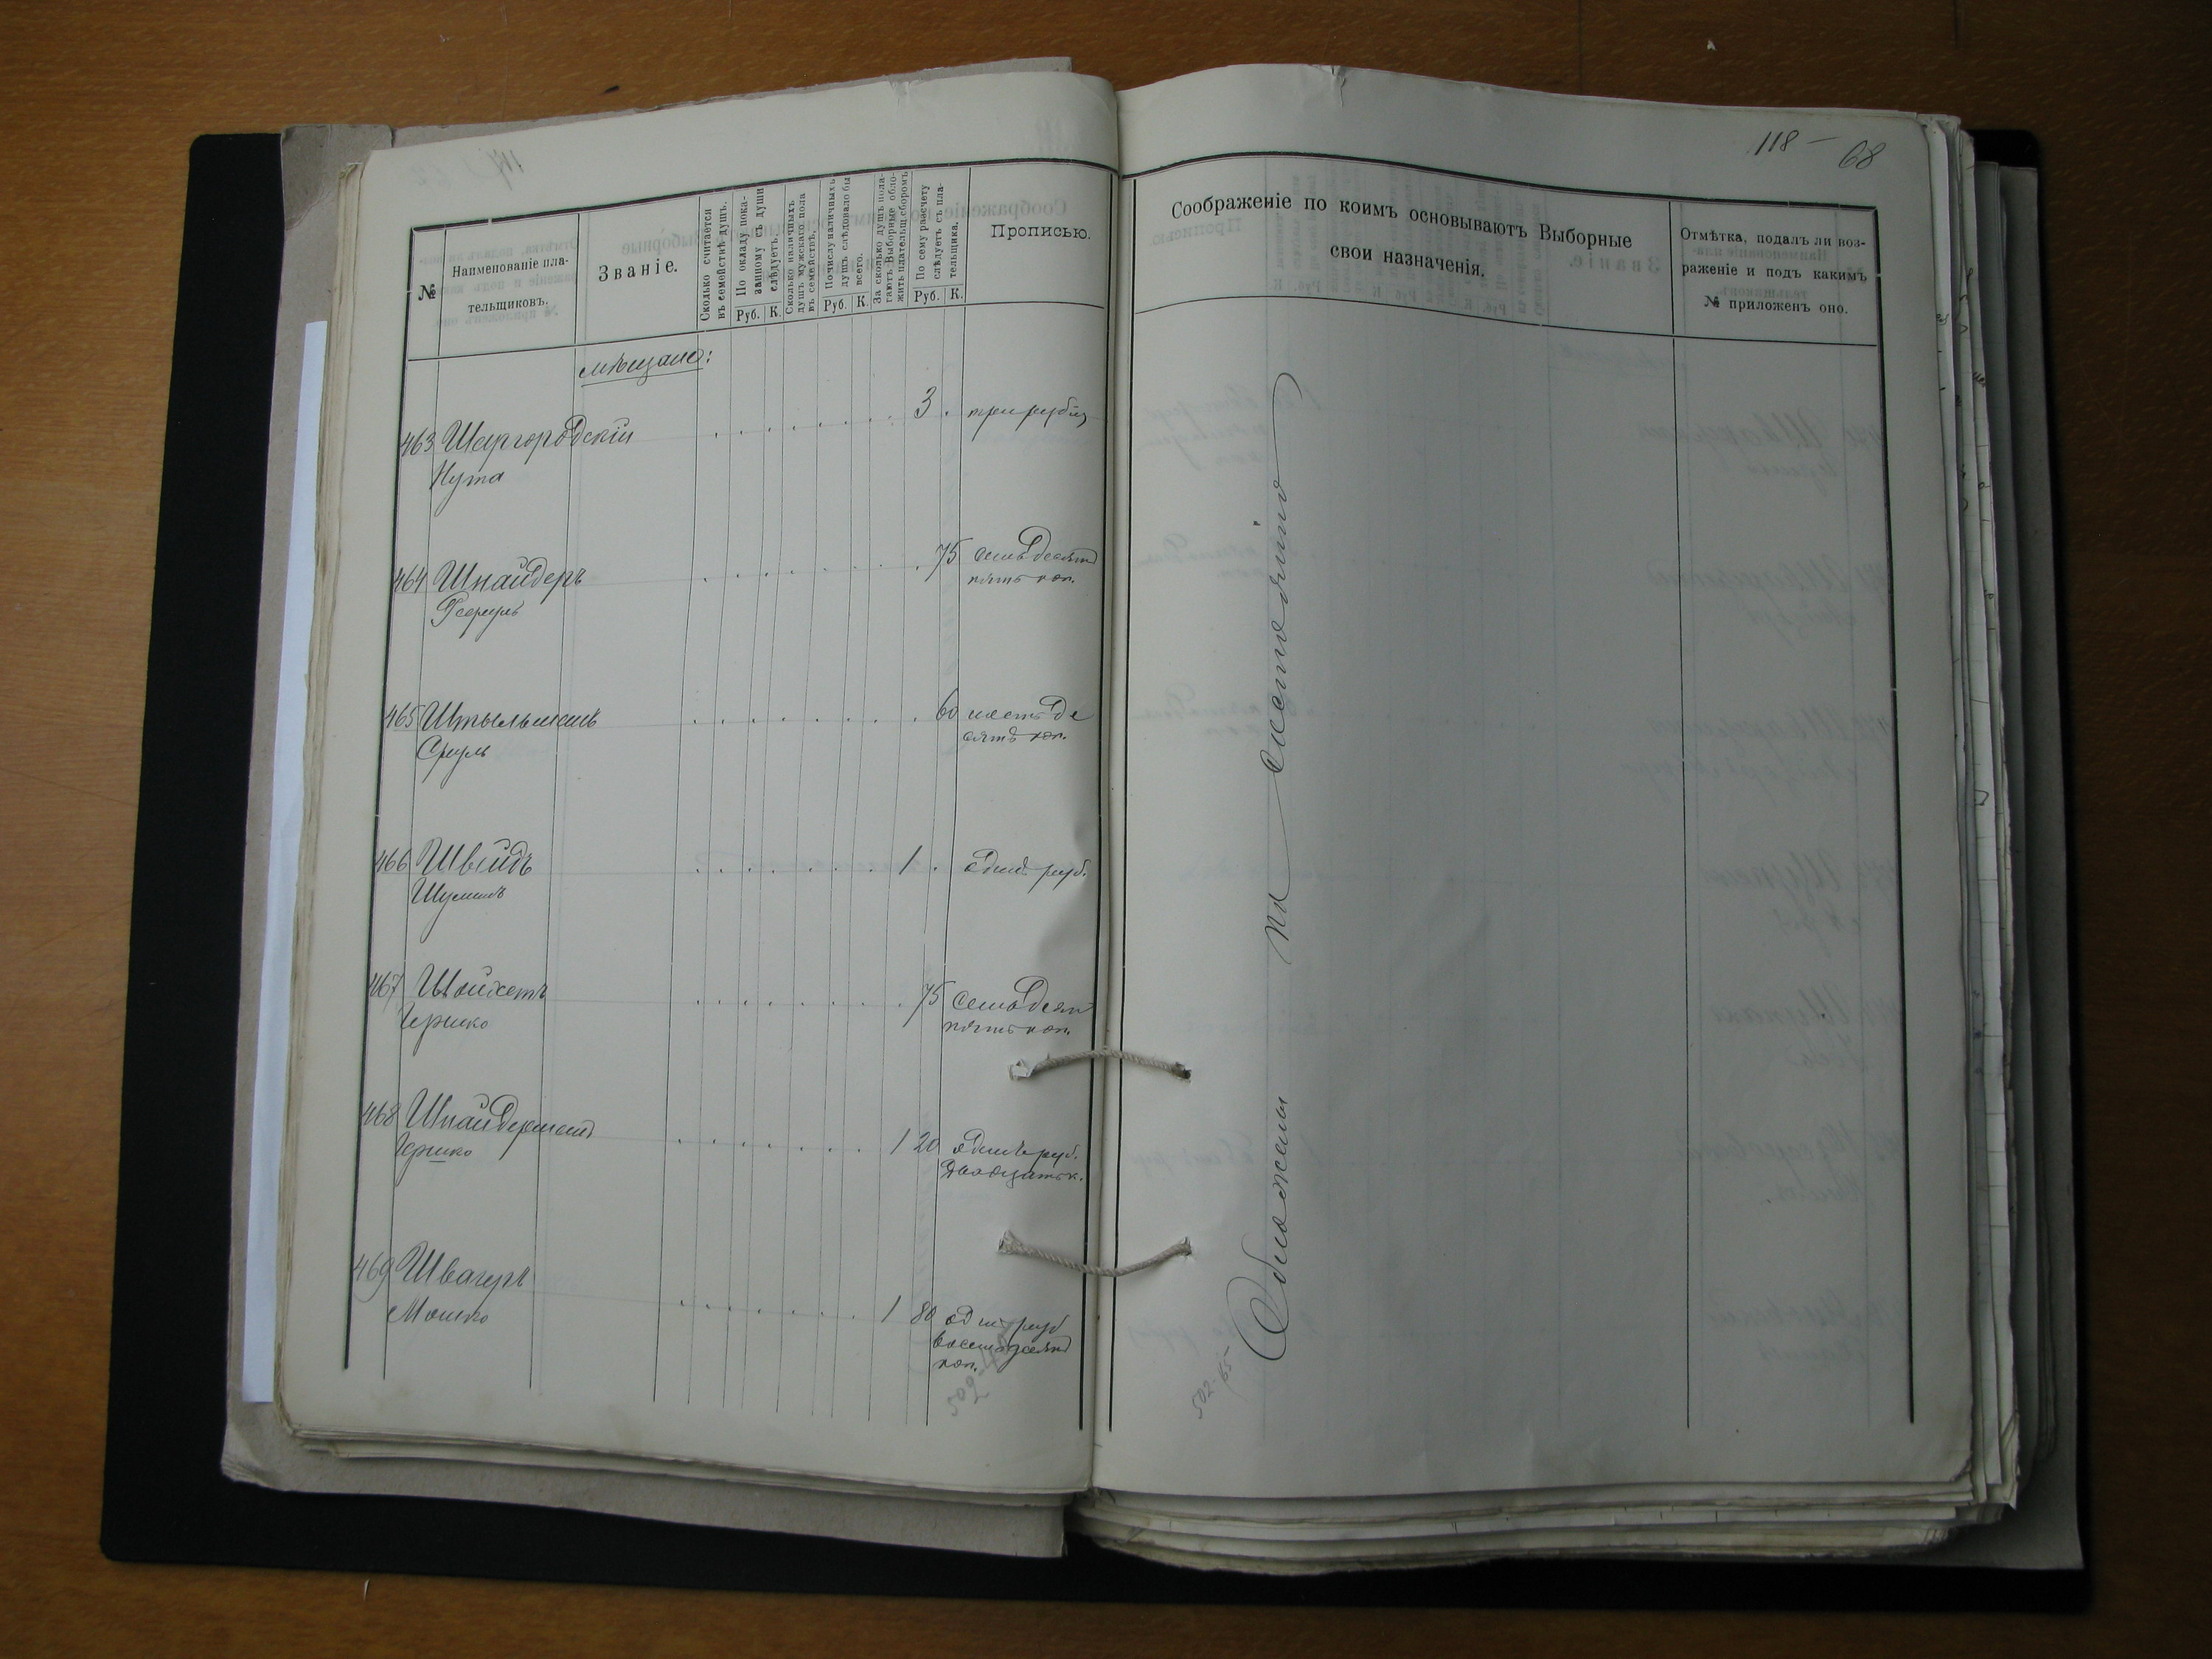 118 — 68
№
Наименованіе пла-
тельщиковъ.
Званіе.
Сколько считается
въ семействѣ душъ.
По окладу пока-
занному съ души
слѣдуетъ.
Руб. К.
Сколько наличныхъ
душъ мужскаго пола
въ семействѣ.
По числу наличныхъ
душъ слѣдовало бы
всего.
Руб. К.
За сколько душъ пола-
гаютъ Выборные обло-
жить плательщ. сборомъ.
По сему разсчету
слѣдуетъ съ пла-
тельщика.
Руб. К.
Прописью.
мѣщане:
463 Шаргородскій 3 . три рубля
Нута
464 Шнайдеръ 75 семьдесят
пять коп.
465 Штыльманъ 60 шестьде
Сруль сятъ коп.
466 Швейдъ 1 . один руб.
467 Шойхетъ 75 семьдесят
Гершко пять коп.
468 Шнайдерманъ
Гершко 1 20 одинъ руб.
двадцать к.
469 Швагеръ
Мошко 1 80 один руб
восемьдесят
коп.
Соображеніе по коимъ основываютъ Выборные
свои назначенія.
Отмѣтка, подалъ ли воз-
раженіе и подъ какимъ
№ приложенъ оно.
Обложены по состоянію
502-65-